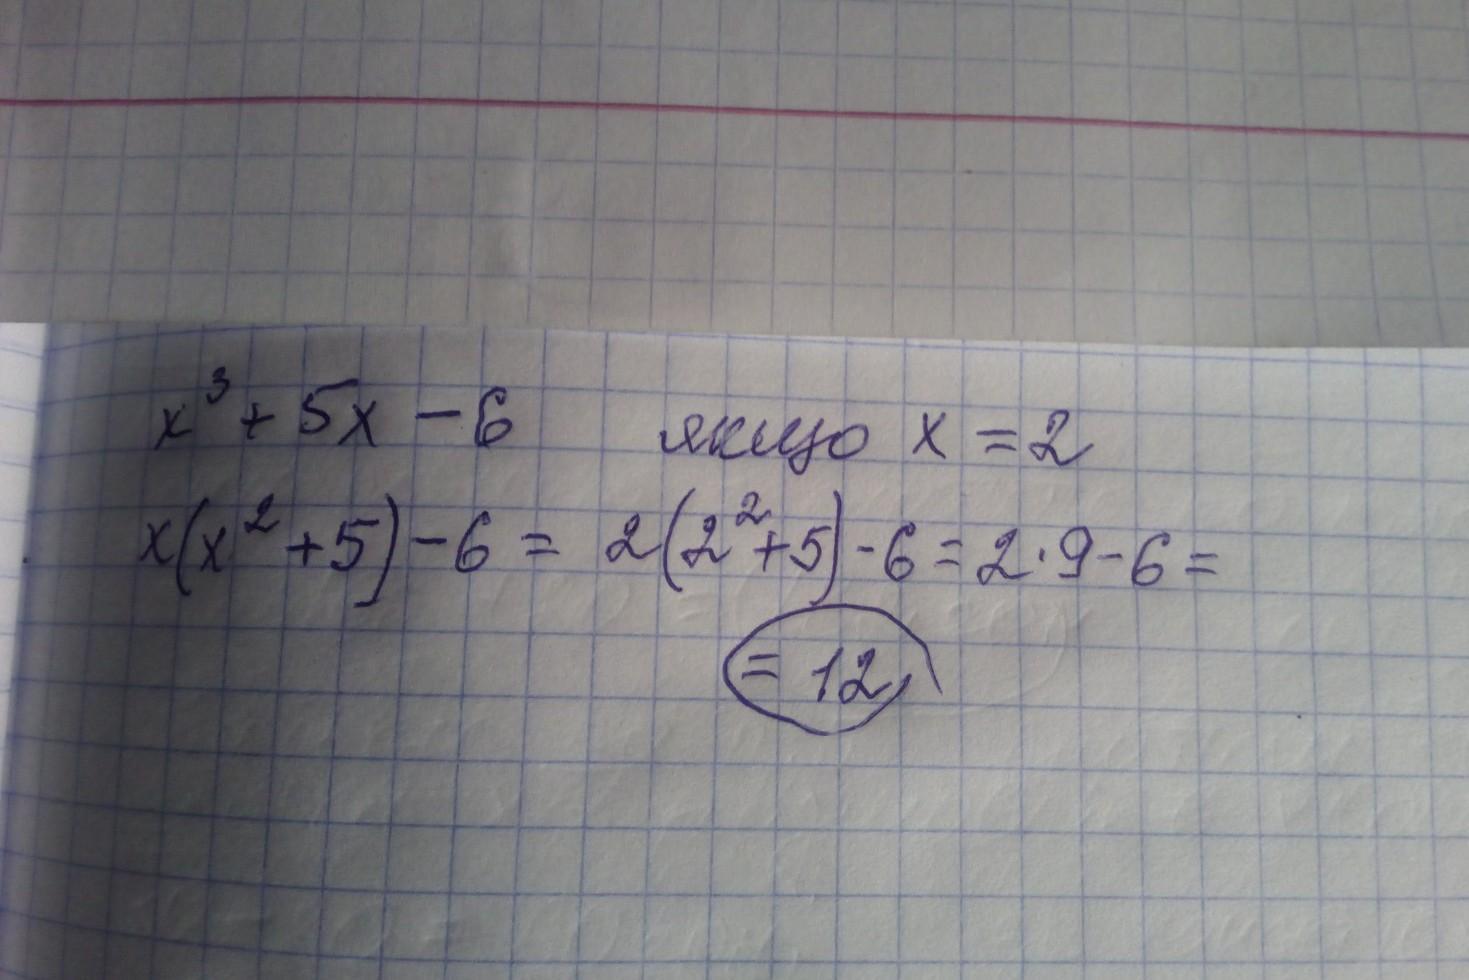 x³ + 5x - 6 якщо x = 2
x(x² + 5) - 6 = 2(2² + 5) - 6 = 2 · 9 - 6 =
= 12